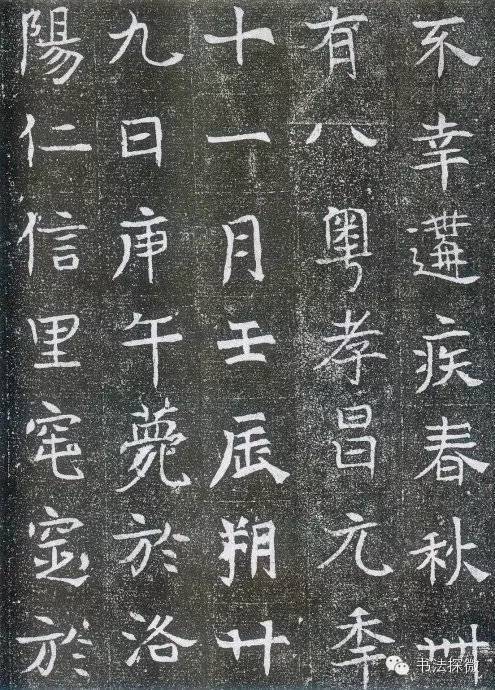 不幸遘疾春秋卌
有八粵孝昌元秊
十一月壬辰朔廿
九日庚午薨於洛
陽仁信里窀穸於
书法探微